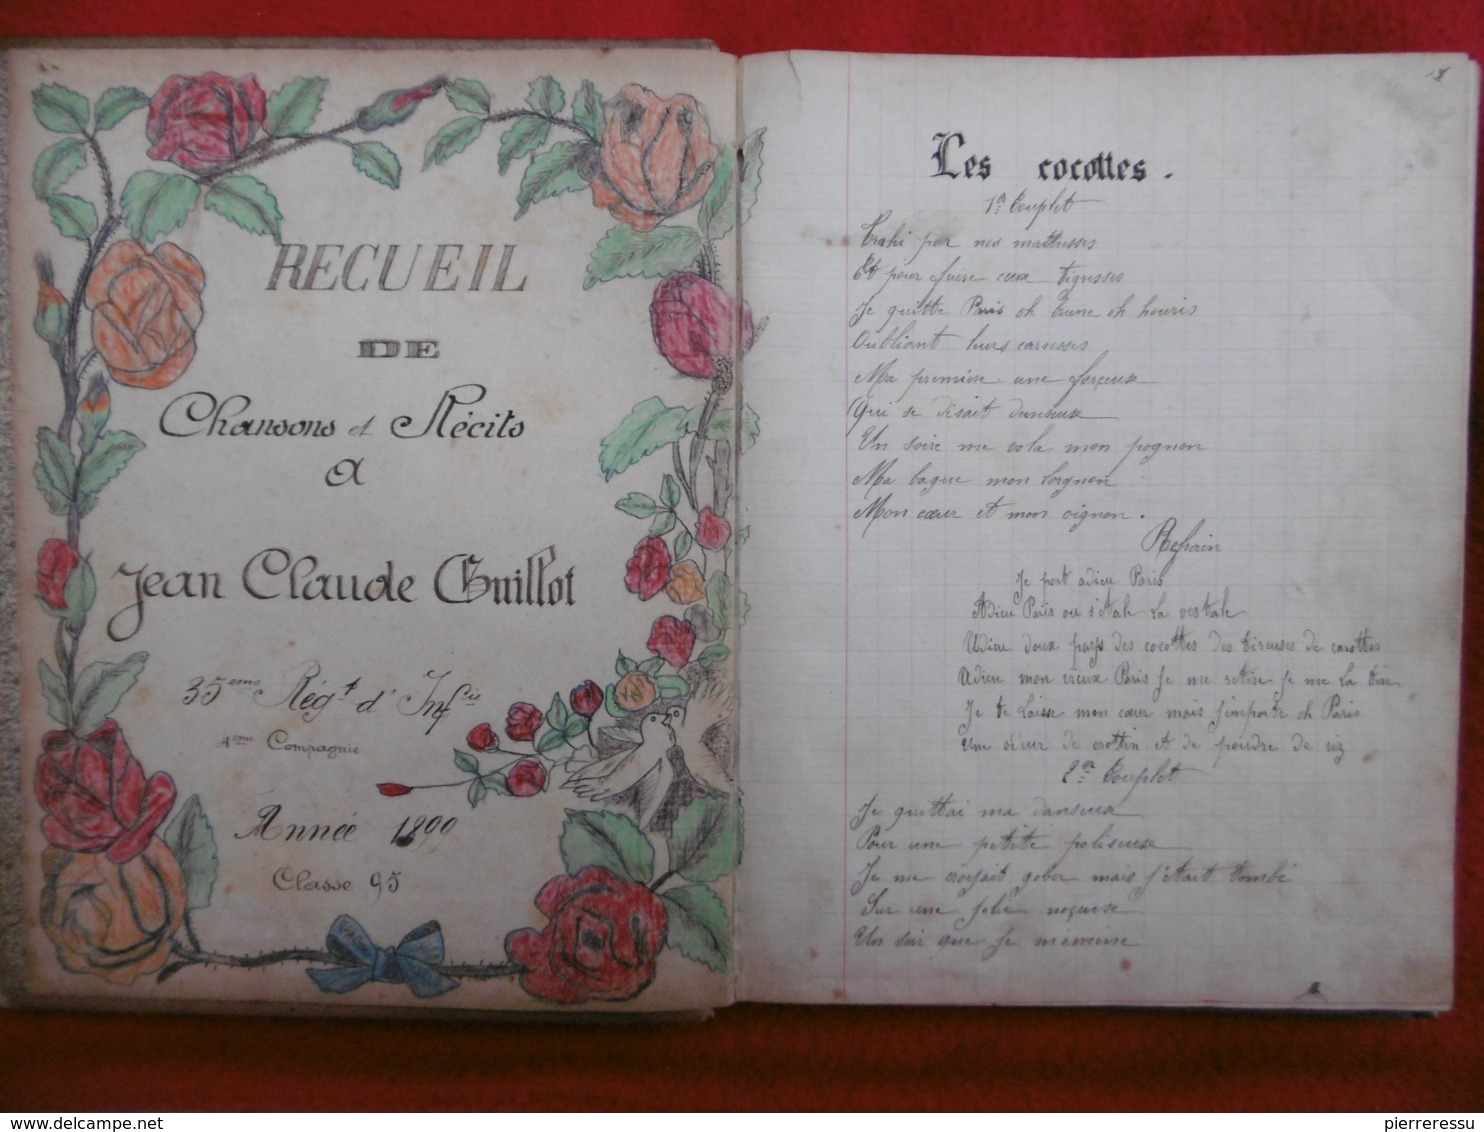 RECUEIL
DE
Chansons et Récits
A
Jean Claude Guillot
35ème Régt d'Infie
4ème Compagnie
Année 1899
Classe 95
Les cocottes.
1er Couplet
Trahi par nos maîtresses
Et pour fuire ceux tigresses
Je quitte Paris oh brune oh houris
Oubliant leurs caresses
Ma première une farceuse
Qui se disait danseuse
Un soire me vola mon pognon
Ma bague mon lorgnon
Mon cœur et mon oignon.
Refrain
Je part adieu Paris
Adieu Paris ou s'étale la vestale
Adieu doux pays des cocottes des tireuses de carottes
Adieu mon vieux Paris Je me retire Je me la tire
Je te laisse mon cœur mais j'emporte oh Paris
Une odeur de crottin et de poudre de riz
2em Couplet
Je quittai ma danseuse
Pour une petite poliseuse
Je me croyait gober mais j'était tombé
Sur une jolie noçeuse
Un soir que je m'amène
pierreressu